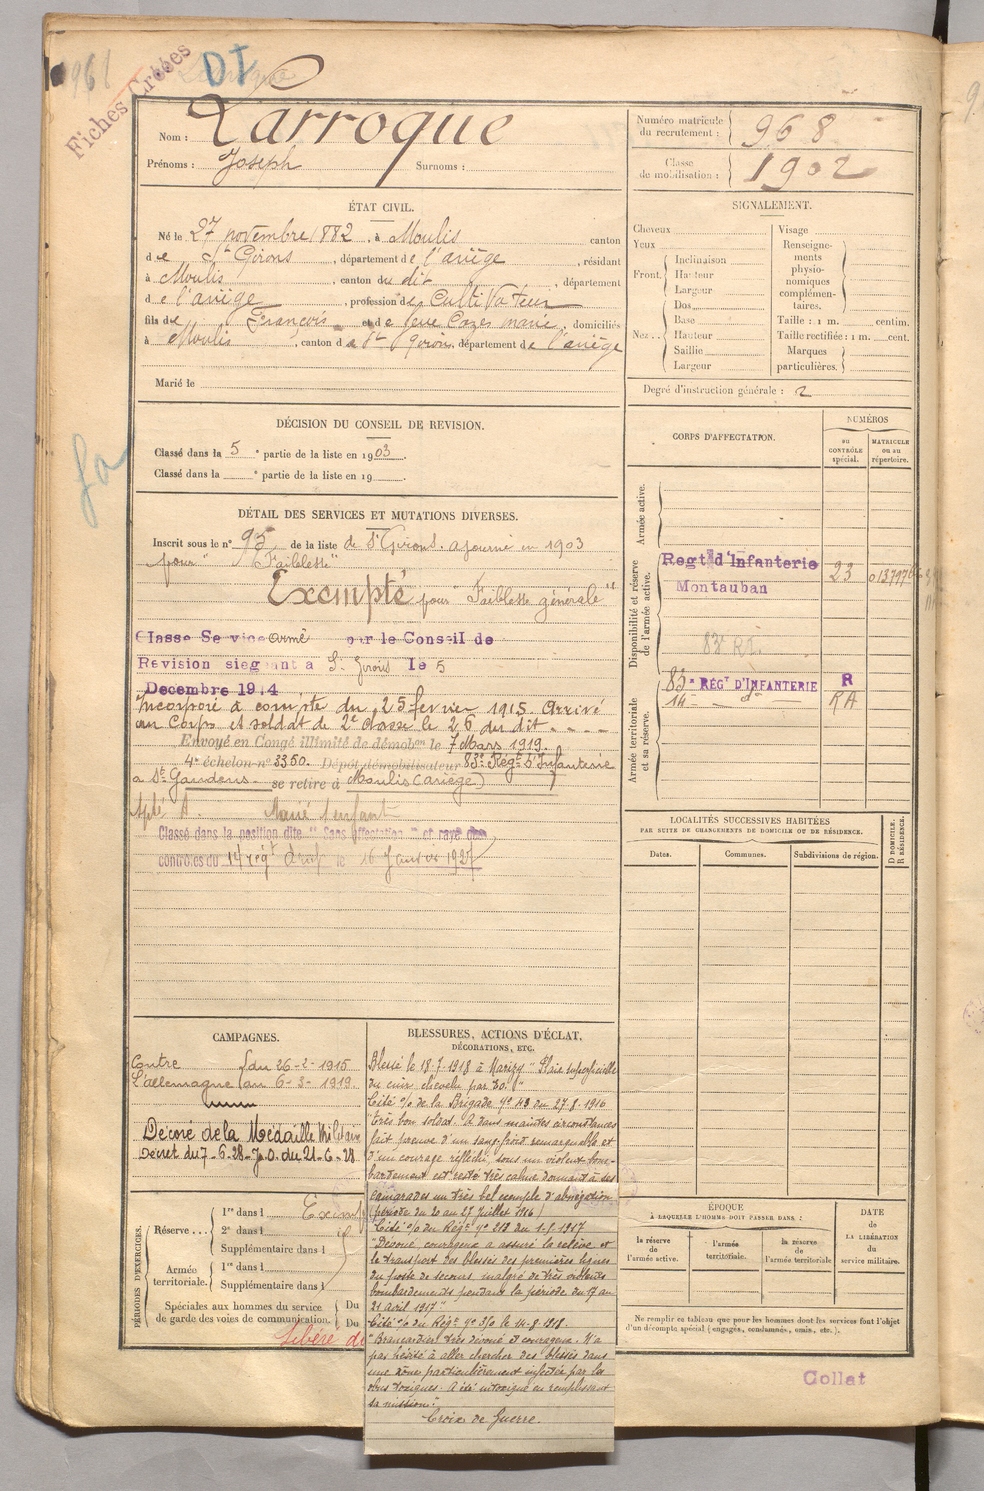 Fiches Créées
DI
Nom : Larroque
Prénoms : Joseph Surnoms :
Numéro matricule du recrutement : 968
Classe de mobilisation : 1902
ÉTAT CIVIL.
Né le 27 novembre 1882, à Moulis canton
de St Girons, département de l'ariège, résidant
à Moulis, canton du dit, département
de l'ariège, profession de Cultivateur
fils de François et de feue Cazes marie, domiciliés
à Moulis, canton de St Girons, département de l'ariège
Marié le
SIGNALEMENT.
Cheveux
Yeux
Front. Inclinaison
Hauteur
Largeur
Nez .. Dos
Base
Hauteur
Saillie
Largeur
Visage
Renseignements physionomiques complémentaires.
Taille : 1 m. centim.
Taille rectifiée : 1 m. cent.
Marques particulières.
Degré d'instruction générale : 2
DÉCISION DU CONSEIL DE REVISION.
Classé dans la 5e partie de la liste en 1903.
Classé dans la e partie de la liste en 19 .
DÉTAIL DES SERVICES ET MUTATIONS DIVERSES.
Inscrit sous le n° 95 de la liste de St Girons. ajourné en 1903
pour "Faiblesse"
Exempté pour "Faiblesse générale"
Classé Service armé par le Conseil de
Revision siegeant à St Girons le 5
Decembre 1914
Incorporé à compter du 25 février 1915 Arrivé
au Corps et soldat de 2e classe le 26 du dit
Envoyé en Congé illimité de démobon le 7 Mars 1919.
4e échelon n° 3350. Dépôt démobilisateur 83e Régt d'Infanterie
à St Gaudens se retire à Moulis (ariège)
Marié 1 enfant
Classé dans la position dite "Sans affectation" et rayé des
contrôles du 14 régt d'art le 16 Janvier 1927
CORPS D'AFFECTATION.
NUMÉROS
au CONTRÔLE spécial.
MATRICULE ou au répertoire.
Armée active.
Disponibilité et réserve de l'armée active.
Regt d'Infanterie 23
Montauban
83e RI.
Armée territoriale et sa réserve.
83e RÉGt D'INFANTERIE R
14 do RA
LOCALITÉS SUCCESSIVES HABITÉES
PAR SUITE DE CHANGEMENTS DE DOMICILE OU DE RÉSIDENCE.
Dates.
Communes.
Subdivisions de région.
D DOMICILE. R RÉSIDENCE.
CAMPAGNES.
Contre du 26-2-1915
L'allemagne au 6-3-1919.
Décoré de la Médaille Militaire
Décret du 7-6-28- J.O. du 21-6-28
BLESSURES, ACTIONS D'ÉCLAT,
DÉCORATIONS, ETC.
Blessé le 18-7-1918 à Marizy "Plaie superficielle
du cuir chevelu par EO."
Cité o/o de la Brigade no 43 du 27-8-1916
"très bon soldat. A dans maintes circonstances
fait preuve d'un sang-froid remarquable et
d'un courage réfléchi, sous un violent bom-
bardement est resté très calme donnant à ses
camarades un très bel exemple d'abnégation
(période du 20 au 27 juillet 1916)
Cité o/o du Régt no 218 du 1-5-1917
"Dévoué, courageux a assuré la relève et
le transport des blessés des premières lignes
au poste de secours, malgré de très violents
bombardements pendant la période du 17 au
21 avril 1917"
Cité o/o du Régt no 310 le 14-8-1918.
"Brancardier très dévoué et courageux. N'a
pas hésité à aller chercher des blessés dans
une zone particulièrement infectée par les
obus toxiques. A été intoxiqué en remplissant
sa mission."
Croix de Guerre.
PÉRIODES D'EXERCICES.
Réserve ... 1re dans l Exempt
2e dans l
Supplémentaire dans l
Armée territoriale. 1re dans l
Supplémentaire dans l
Spéciales aux hommes du service Du
de garde des voies de communication. Du
Libéré
ÉPOQUE
À LAQUELLE L'HOMME DOIT PASSER DANS :
la réserve de l'armée active.
l'armée territoriale.
la réserve de l'armée territoriale
DATE de LA LIBÉRATION du service militaire.
Ne remplir ce tableau que pour les hommes dont les services font l'objet
d'un décompte spécial (engagés, condamnés, omis, etc.).
Collat